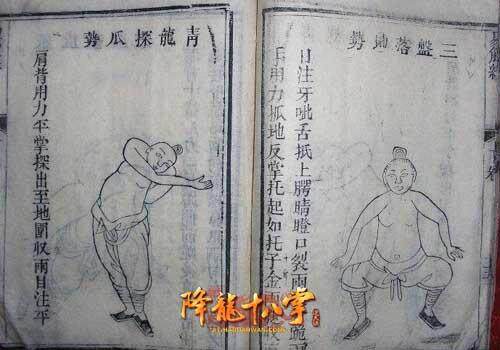 三盤落地勢
目注牙呲舌抵上腭睛瞪口裂兩
手用力抓地反掌托起如托千金兩
青龍探爪勢
肩背用力平掌探出至地圍収兩目注平
降龍十八掌